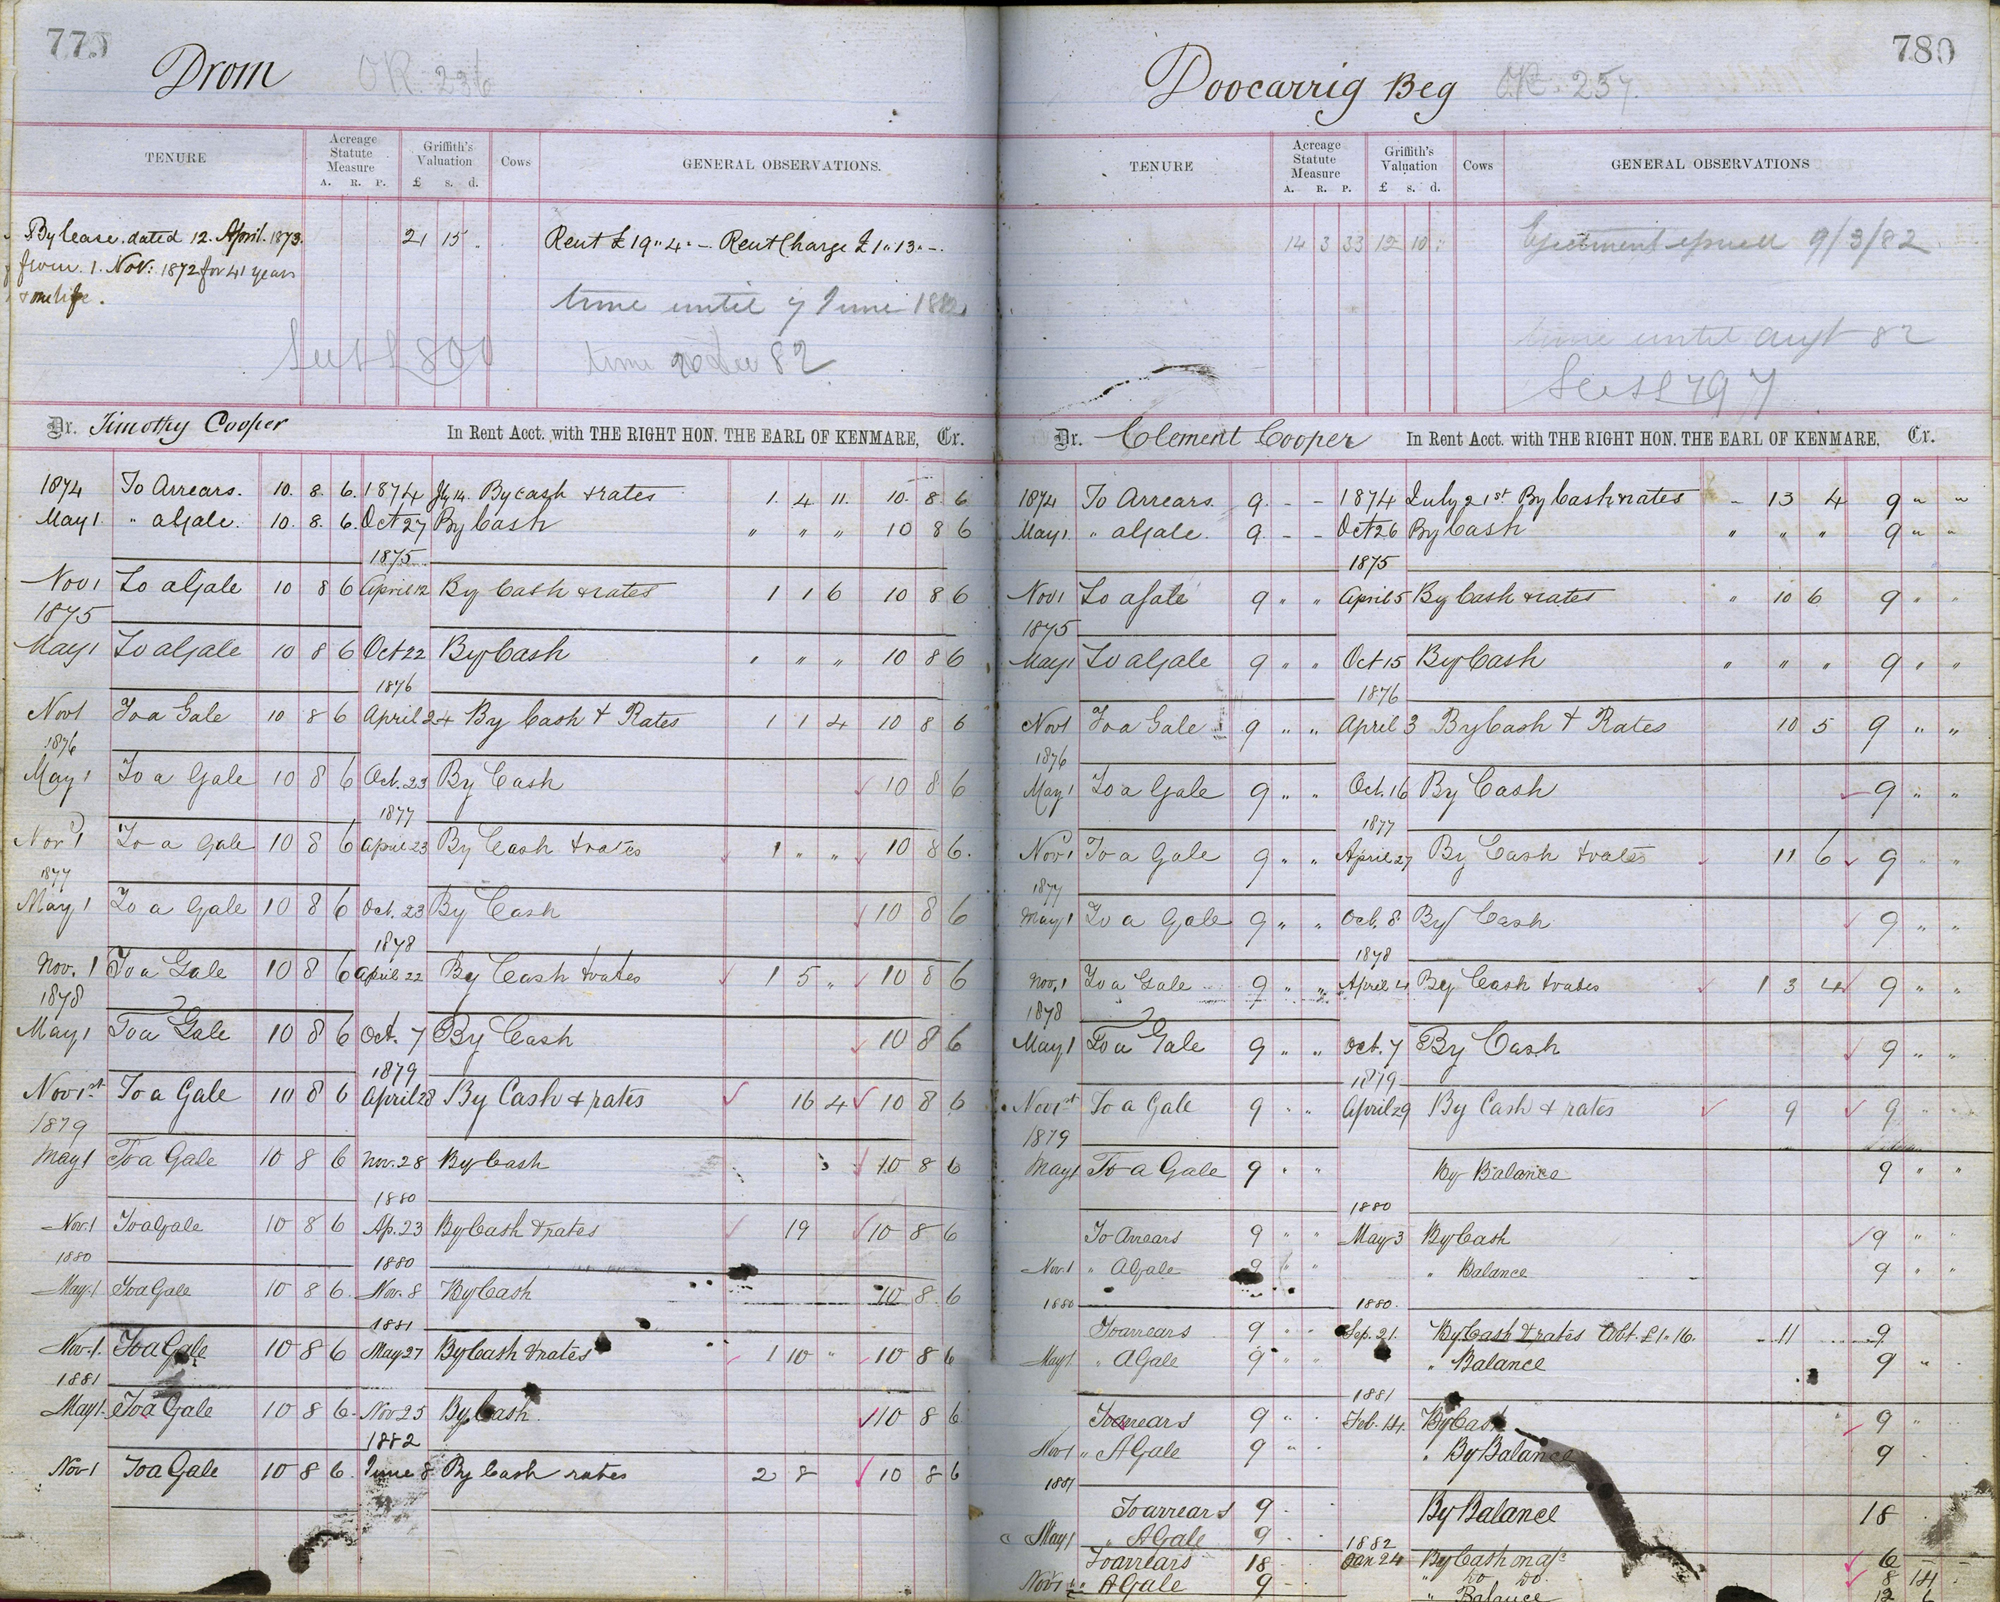 779
Drom OR. 236
TENURE
Acreage Statute Measure
A. R. P.
Griffith's Valuation
£ s. d.
Cows
GENERAL OBSERVATIONS.
By lease dated 12 April 1873. 21 15 . Rent £19 " 4 " - Rent Charge £1 " 13 " -.
from 1. Nov: 1872 for 41 years
& one life.
time until 7 June 1882
time 82
Dr. Timothy Cooper In Rent Acct. with THE RIGHT HON. THE EARL OF KENMARE, Cr.
1874 To Arrears. 10. 8. 6. 1874 Jy 14. By cash & rates 1. 4 11. 10. 8 6
May 1. " a Gale. 10. 8. 6. Oct 27 By Cash " " " 10 8 6
1875
Nov 1 To a Gale 10 8 6 April 12 By Cash & rates 1 1 6 10 8 6
1875
May 1 To a Gale 10 8 6 Oct 22 By Cash " " " 10 8 6
1876
Nov 1 To a Gale 10 8 6 April 24 By Cash & Rates 1 1 4 10 8 6
1876
May 1 To a Gale 10 8 6 Oct. 23 By Cash 10 8 6
1877
Nov 1 To a Gale 10 8 6 April 23 By Cash & rates 1 " " 10 8 6.
1877
May 1 To a Gale 10 8 6 Oct. 23 By Cash 10 8 6
1878
Nov. 1 To a Gale 10 8 6 April 22 By Cash & rates 1 5 " 10 8 6
1878
May 1 To a Gale 10 8 6 Oct. 7 By Cash 10 8 6
1879
Nov 1st To a Gale 10 8 6 April 28 By Cash & rates 16 4 10 8 6
1879
May 1 To a Gale 10 8 6 Nov. 28 By Cash 10 8 6
1880
Nov. 1 To a Gale 10 8 6 Ap. 23 By Cash & rates 19 10 8 6
1880 1880
May. 1 To a Gale 10 8 6. Nov. 8 By Cash 10 8 6
1881
Nov. 1. To a Gale 10 8 6 May 27 By Cash & rates 1 10 " 10 8 6
1881
May 1. To a Gale 10 8 6. Nov 25 By Cash. 10 8 6
1882
Nov 1 To a Gale 10 8 6. June 8 By Cash rates 2 8 10 8 6
780
Doocarrig Beg OR. 257.
TENURE
Acreage Statute Measure
A. R. P.
Griffith's Valuation
£ s. d.
Cows
GENERAL OBSERVATIONS
14 3 33 12 10 " Ejectment 9/3/82
time until augt 82
Dr. Clement Cooper In Rent Acct. with THE RIGHT HON. THE EARL OF KENMARE, Cr.
1874 To Arrears. 9. - - 1874 July 21st By Cash & rates - 13 4 9 " "
May 1 " a Gale. 9. - - Oct 26 By Cash " " " 9 " "
1875
Nov 1 To a Gale 9 " " April 5 By Cash & rates " 10 6 9 " "
1875
May 1 To a Gale 9 " " Oct 15 By Cash " " " 9 " "
1876
Nov 1 To a Gale 9 " " April 3 By Cash & Rates 10 5 9 " "
1876
May 1 To a Gale 9 " " Oct. 16 By Cash 9 " "
1877
Nov 1 To a Gale 9 " " April 27 By Cash & rates 11 6 9 " "
1877
May 1 To a Gale 9 " " Oct. 8 By Cash 9 " "
1878
Nov. 1 To a Gale 9 " " April 4 By Cash & rates 1 3 4 9 " "
1878
May 1 To a Gale 9 " " Oct. 7 By Cash 9 " "
1879
Nov 1st To a Gale 9 " " April 29 By Cash & rates 9 9 " "
1879
May 1 To a Gale 9 " " By Balance 9 " "
1880
To Arrears 9 " " May 3 By Cash 9 " "
Nov. 1 " A Gale 9 " " " Balance 9 " "
1880 1880.
To arrears 9 " " Sep. 21. By Cash & rates Abt. £1. 16. - 11 9
May 1 " A Gale 9 " " " Balance 9 "
1881
To arrears 9 " " Feb. 14. By Cash 9 "
Nov 1 " A Gale 9 " " " By Balance 9
1881
To arrears 9 " By Balance 18
May 1 " A Gale 9 - - 1882
To arrears 18 - Jan 24 By Cash on a/c 6 - -
Nov 1 " A Gale 9 - " Do Do. 8 14 -
" Balance 12 6